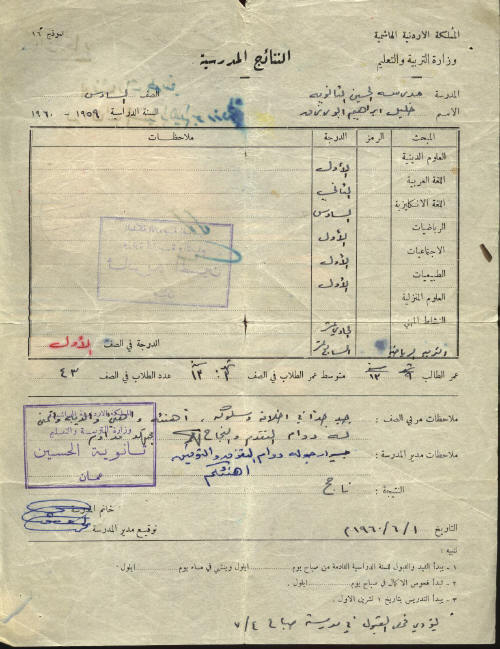 المملكة الاردنية الهاشمية
نموذج ١٦
وزارة التربية والتعليم
النتائج المدرسية
المدرسة : مدرسة الحسين الثانوية
الصف السادس
الاسم خليل ابراهيم
السنة الدراسية ١٩٥٩ - ١٩٦٠
المبحث الرمز الدرجة ملاحظات
العلوم الدينية الأول
اللغة العربية الثاني
اللغة الانكليزية السادس
الرياضيات الأول
الاجتماعيات الأول
الطبيعيات الأول
العلوم المنزلية
النشاط المهني الحادي عشر
التربية الرياضية السابع عشر
الدرجة في الصف الأول
عمر الطالب متوسط عمر الطلاب في الصف عدد الطلاب في الصف ٤٣
ملاحظات مربي الصف : جيد جدا في اخلاقه وسلوكه . أهنئه وأتمنى
له دوام التقدم والنجاح
ملاحظات مدير المدرسة : ارجو له دوام التفوق والتوفيق
أهنئكم
النتيجة : ناجح
وزارة التربية والتعليم
ثانوية الحسين
عمان
خاتم المدرسة
توقيع مدير المدرسة
التاريخ ١ / ٦ / ١٩٦٠
تنبيه :
١ - يبدأ القيد والقبول للسنة الدراسية القادمة من صباح يوم ايلول وينتهي في مساء يوم ايلول .
٢ - تبدأ فحوص الاكمال في صباح يوم ايلول .
٣ - يبدأ التدريس بتاريخ ١ تشرين الاول .
يؤدي فحص القبول في مدرسة صباح ٤ / ٧